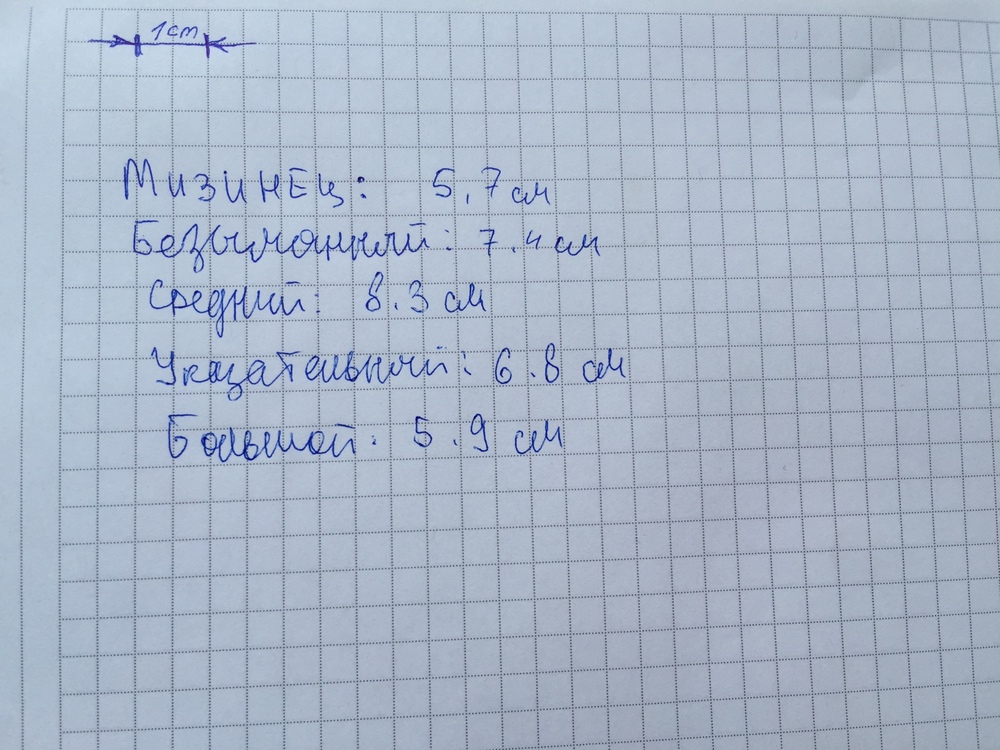 1cm
Мизинец: 5,7 см
Безыманный: 7.4 см
Средний: 8.3 см
Указательный: 6.8 см
Большой: 5.9 см